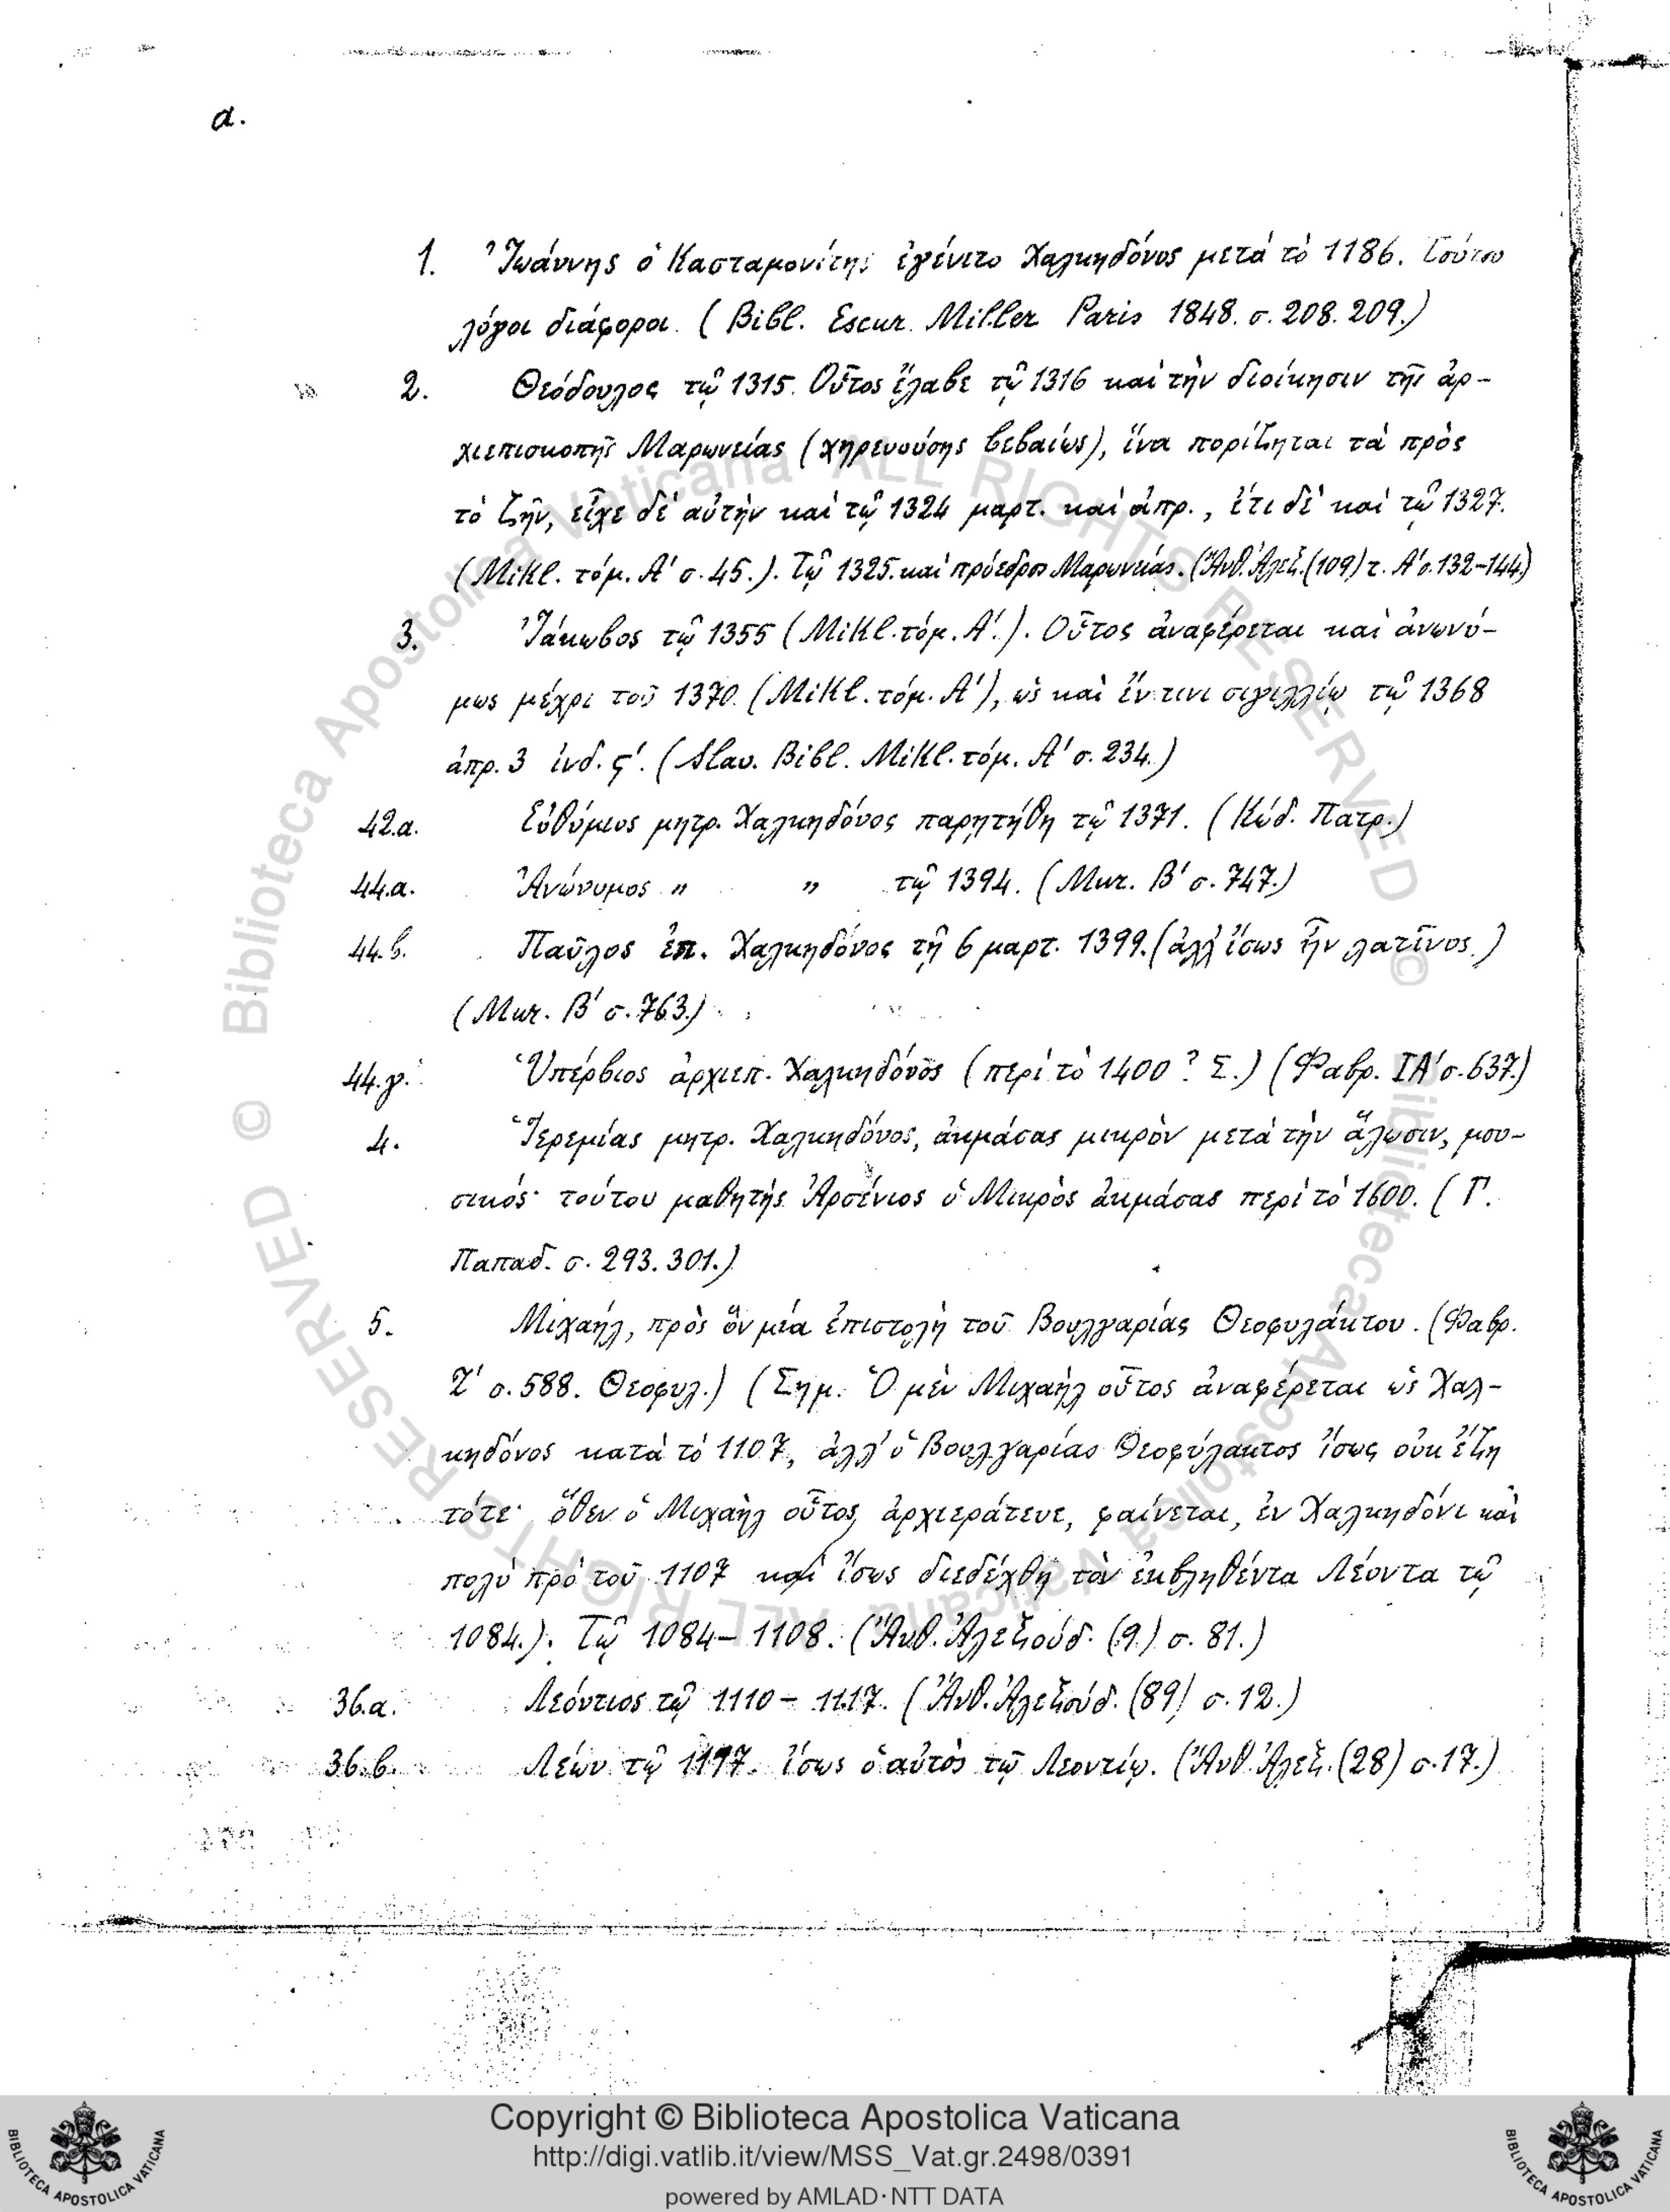 α.
1. Ἰωάννης ὁ Κασταμονίτης ἐγένετο Χαλκηδόνος μετὰ τὸ 1186. Τούτου
λόγοι διάφοροι. (Bibl. Escur. Miller Paris 1848. σ. 208. 209.)
2. Θεόδουλος τῷ 1315. Οὗτος ἔλαβε τῷ 1316 καὶ τὴν διοίκησιν τῆς ἀρ-
χιεπισκοπῆς Μαρωνείας (χηρευούσης βεβαίως), ἵνα πορίζηται τὰ πρὸς
τὸ ζῆν, εἶχε δὲ αὐτὴν καὶ τῷ 1324 μαρτ. καὶ ἀπρ., ἔτι δὲ καὶ τῷ 1327.
(Mikl. τόμ. Α' σ. 45.). Τῷ 1325. καὶ πρόεδρος Μαρωνείας. (Ἄνθ. Ἀλεξ. (109) τ. Α' σ. 132-144)
3. Ἰάκωβος τῷ 1355 (Mikl. τόμ. Α'.). Οὗτος ἀναφέρεται καὶ ἀνωνύ-
μως μέχρι τοῦ 1370. (Mikl. τόμ. Α'), ὡς καὶ ἔν τινι σιγιλλίῳ τῷ 1368
ἀπρ. 3 ἰνδ. ς'. (Slav. Bibl. Mikl. τόμ. Α' σ. 234.)
42.α. Εὐθύμιος μητρ. Χαλκηδόνος παρῃτήθη τῷ 1371. (Κώδ. Πατρ.)
44.α. Ἀνώνυμος „ „ τῷ 1394. (Μικ. Β' σ. 747.)
44.β. Παῦλος ἐπ. Χαλκηδόνος τῇ 6 μαρτ. 1399. (ἀλλ' ἴσως ἦν λατῖνος.)
(Μικ. Β' σ. 763.)
44.γ. Ὑπέρβιος ἀρχιεπ. Χαλκηδόνος (περὶ τὸ 1400? Σ.) (Φαβρ. ΙΑ' σ. 637.)
4. Ἱερεμίας μητρ. Χαλκηδόνος, ἀκμάσας μικρὸν μετὰ τὴν ἅλωσιν, μου-
σικός· τούτου μαθητὴς Ἀρσένιος ὁ Μικρὸς ἀκμάσας περὶ τὸ 1600. (Γ.
Παπαδ. σ. 293. 301.)
5. Μιχαήλ, πρὸς ὃν μία ἐπιστολὴ τοῦ Βουλγαρίας Θεοφυλάκτου. (Φαβρ.
Ζ' σ. 588. Θεοφυλ.) (Σημ. Ὁ μὲν Μιχαὴλ οὗτος ἀναφέρεται ὡς Χαλ-
κηδόνος κατὰ τὸ 1107, ἀλλ' ὁ Βουλγαρίας Θεοφύλακτος ἴσως οὐκ ἔζη
τότε· ὅθεν ὁ Μιχαὴλ οὗτος ἀρχιεράτευε, φαίνεται, ἐν Χαλκηδόνι καὶ
πολὺ πρὸ τοῦ 1107 καὶ ἴσως διεδέχθη τὸν ἐκβληθέντα Λέοντα τῷ
1084.). Τῷ 1084-1108. (Ἄνθ. Ἀλεξούδ. (9) σ. 81.)
36.α. Λεόντιος τῷ 1110-1117. (Ἄνθ. Ἀλεξούδ. (89) σ. 12.)
36.β. Λέων τῷ 1117. ἴσως ὁ αὐτὸς τῷ Λεοντίῳ. (Ἄνθ. Ἀλεξ. (28) σ. 17.)
© Biblioteca Apostolica Vaticana ALL RIGHTS RESERVED ©
Biblioteca Apostolica Vaticana ALL RIGHTS RESERVED
Copyright © Biblioteca Apostolica Vaticana
http://digi.vatlib.it/view/MSS_Vat.gr.2498/0391
powered by AMLAD·NTT DATA
BIBLIOTECA APOSTOLICA VATICANA
BIBLIOTECA APOSTOLICA VATICANA